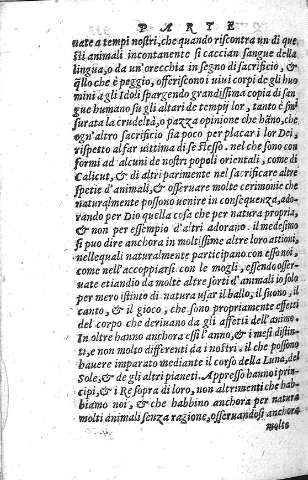 PARTE
uate a tempi nostri, che quando riscontra un di que
sti animali incontanente si caccian sangue della
lingua, o da un'orecchia in segno di sacrificio, &
q̃llo che è peggio, offeriscono i uiui corpi de gli huo
mini a gli Idoli spargendo grandissima copia di san
gue humano su gli altari de tempij lor, tanto è smi
surata la crudeltà, o pazza opinione che hãno, che
ogn'altro sacrificio sia poco per placar i lor Dei,
rispetto al far uittima di se stesso. nel che sono con
formi ad alcuni de nostri popoli orientali, come di
Calicut, & di altri parimente nel sacrificare altre
spetie d'animali, & osseruare molte cerimonie che
naturalmente possono uenire in consequenza, ado-
rando per Dio quella cosa che per natura propria,
& non per essempio d'altri adorano. il medesimo
si puo dire anchora in moltissime altre loro attioni,
nelle quali naturalmente participano con esso noi,
come nell'accoppiarsi con le mogli, essendo osser-
uate etiandio da molte altre sorti d'animali io solo
per mero istinto di natura usar il ballo, il suono, il
canto, & il gioco, che sono propriamente effetti
del corpo che deriuano da gli affetti dell'animo.
In oltre hanno anchora essi l'anno, & i mesi distin-
ti, e non molto differenti da i nostri. il che possono
hauere imparato mediante il corso della Luna, del
Sole, & de gli altri pianeti. Appresso hanno i prin-
cipi, & i Re sopra di loro, non altrimenti che hab-
biamo noi, & che habbino anchora per natura
molti animali senza ragione, osseruandosi anchora
molto